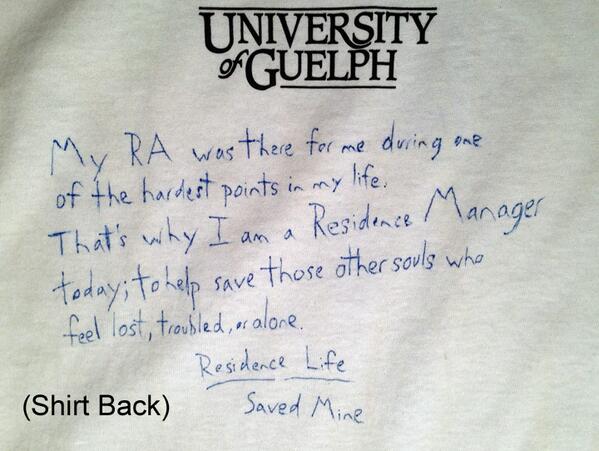 UNIVERSITY
of GUELPH
My RA was there for me during one
of the hardest points in my life.
That's why I am a Residence Manager
today; to help save those other souls who
feel lost, troubled, or alone.
Residence Life
Saved Mine
(Shirt Back)